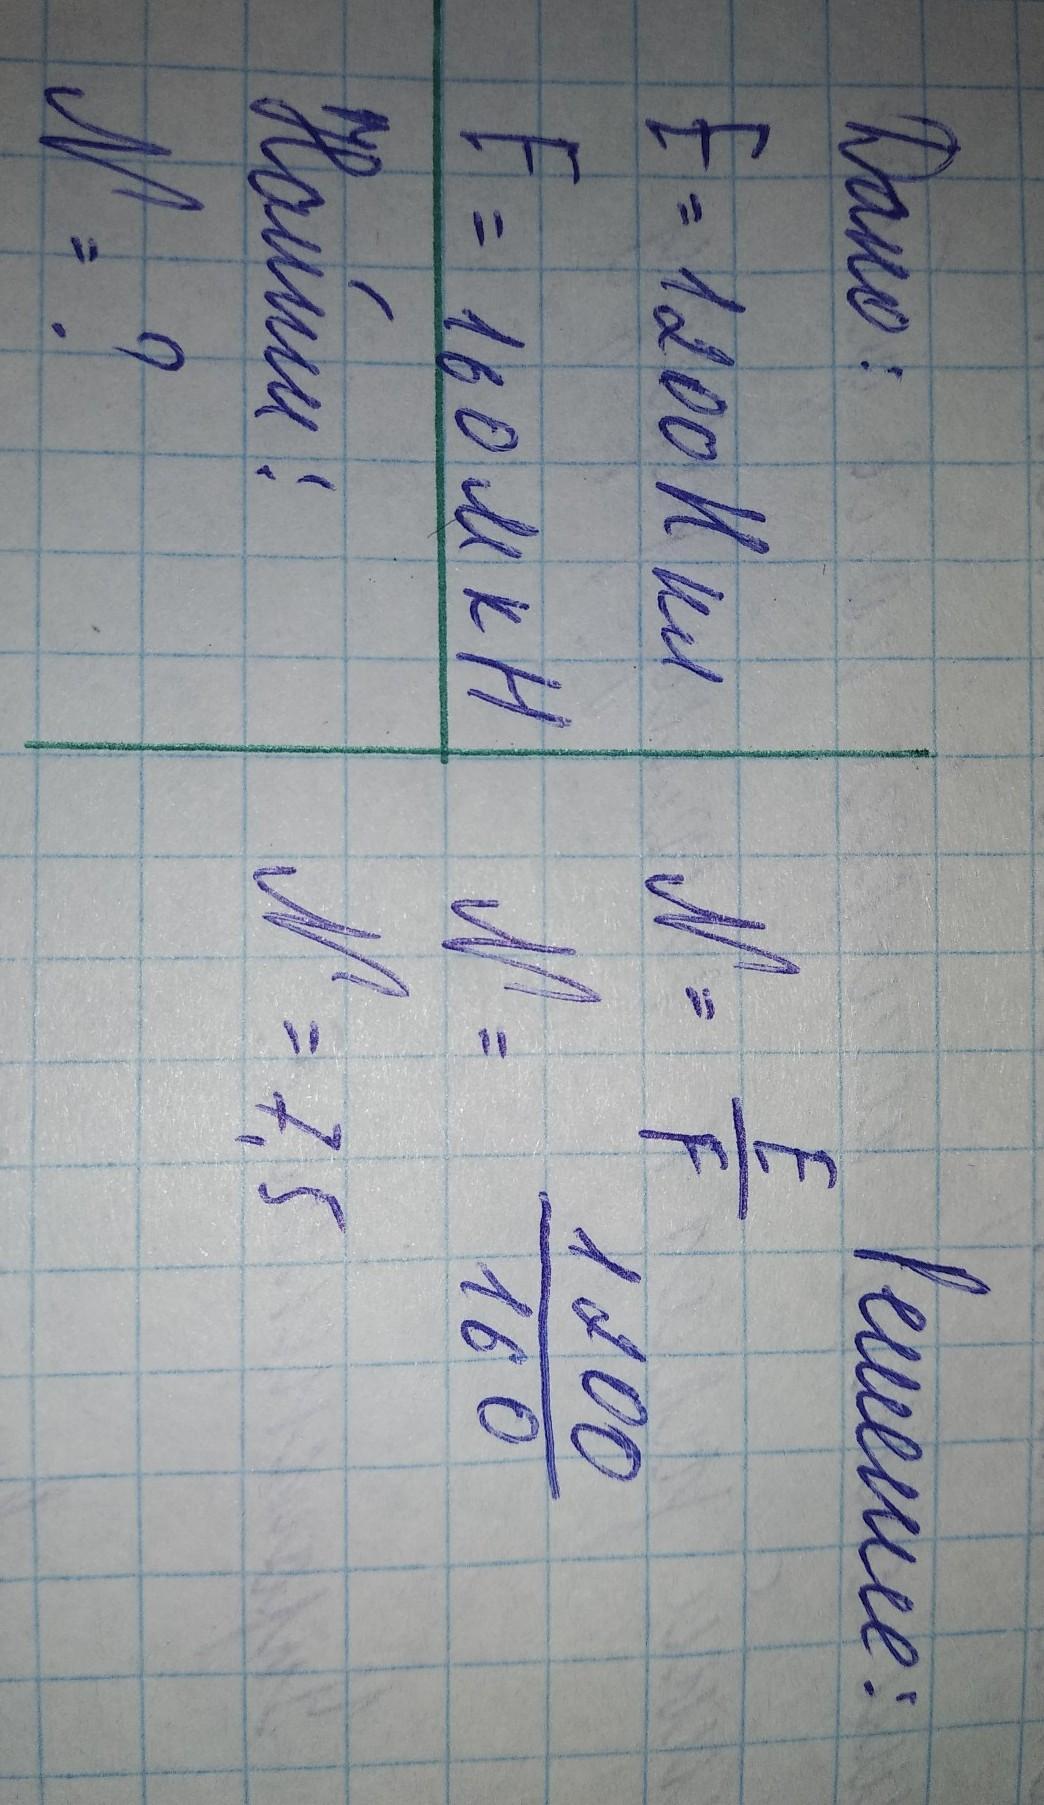 Дано:
E = 1200 Н кл
F = 160 мкН
Найти:
N = ?
Решение:
N = E/F
N = 1200/160
N = 7,5